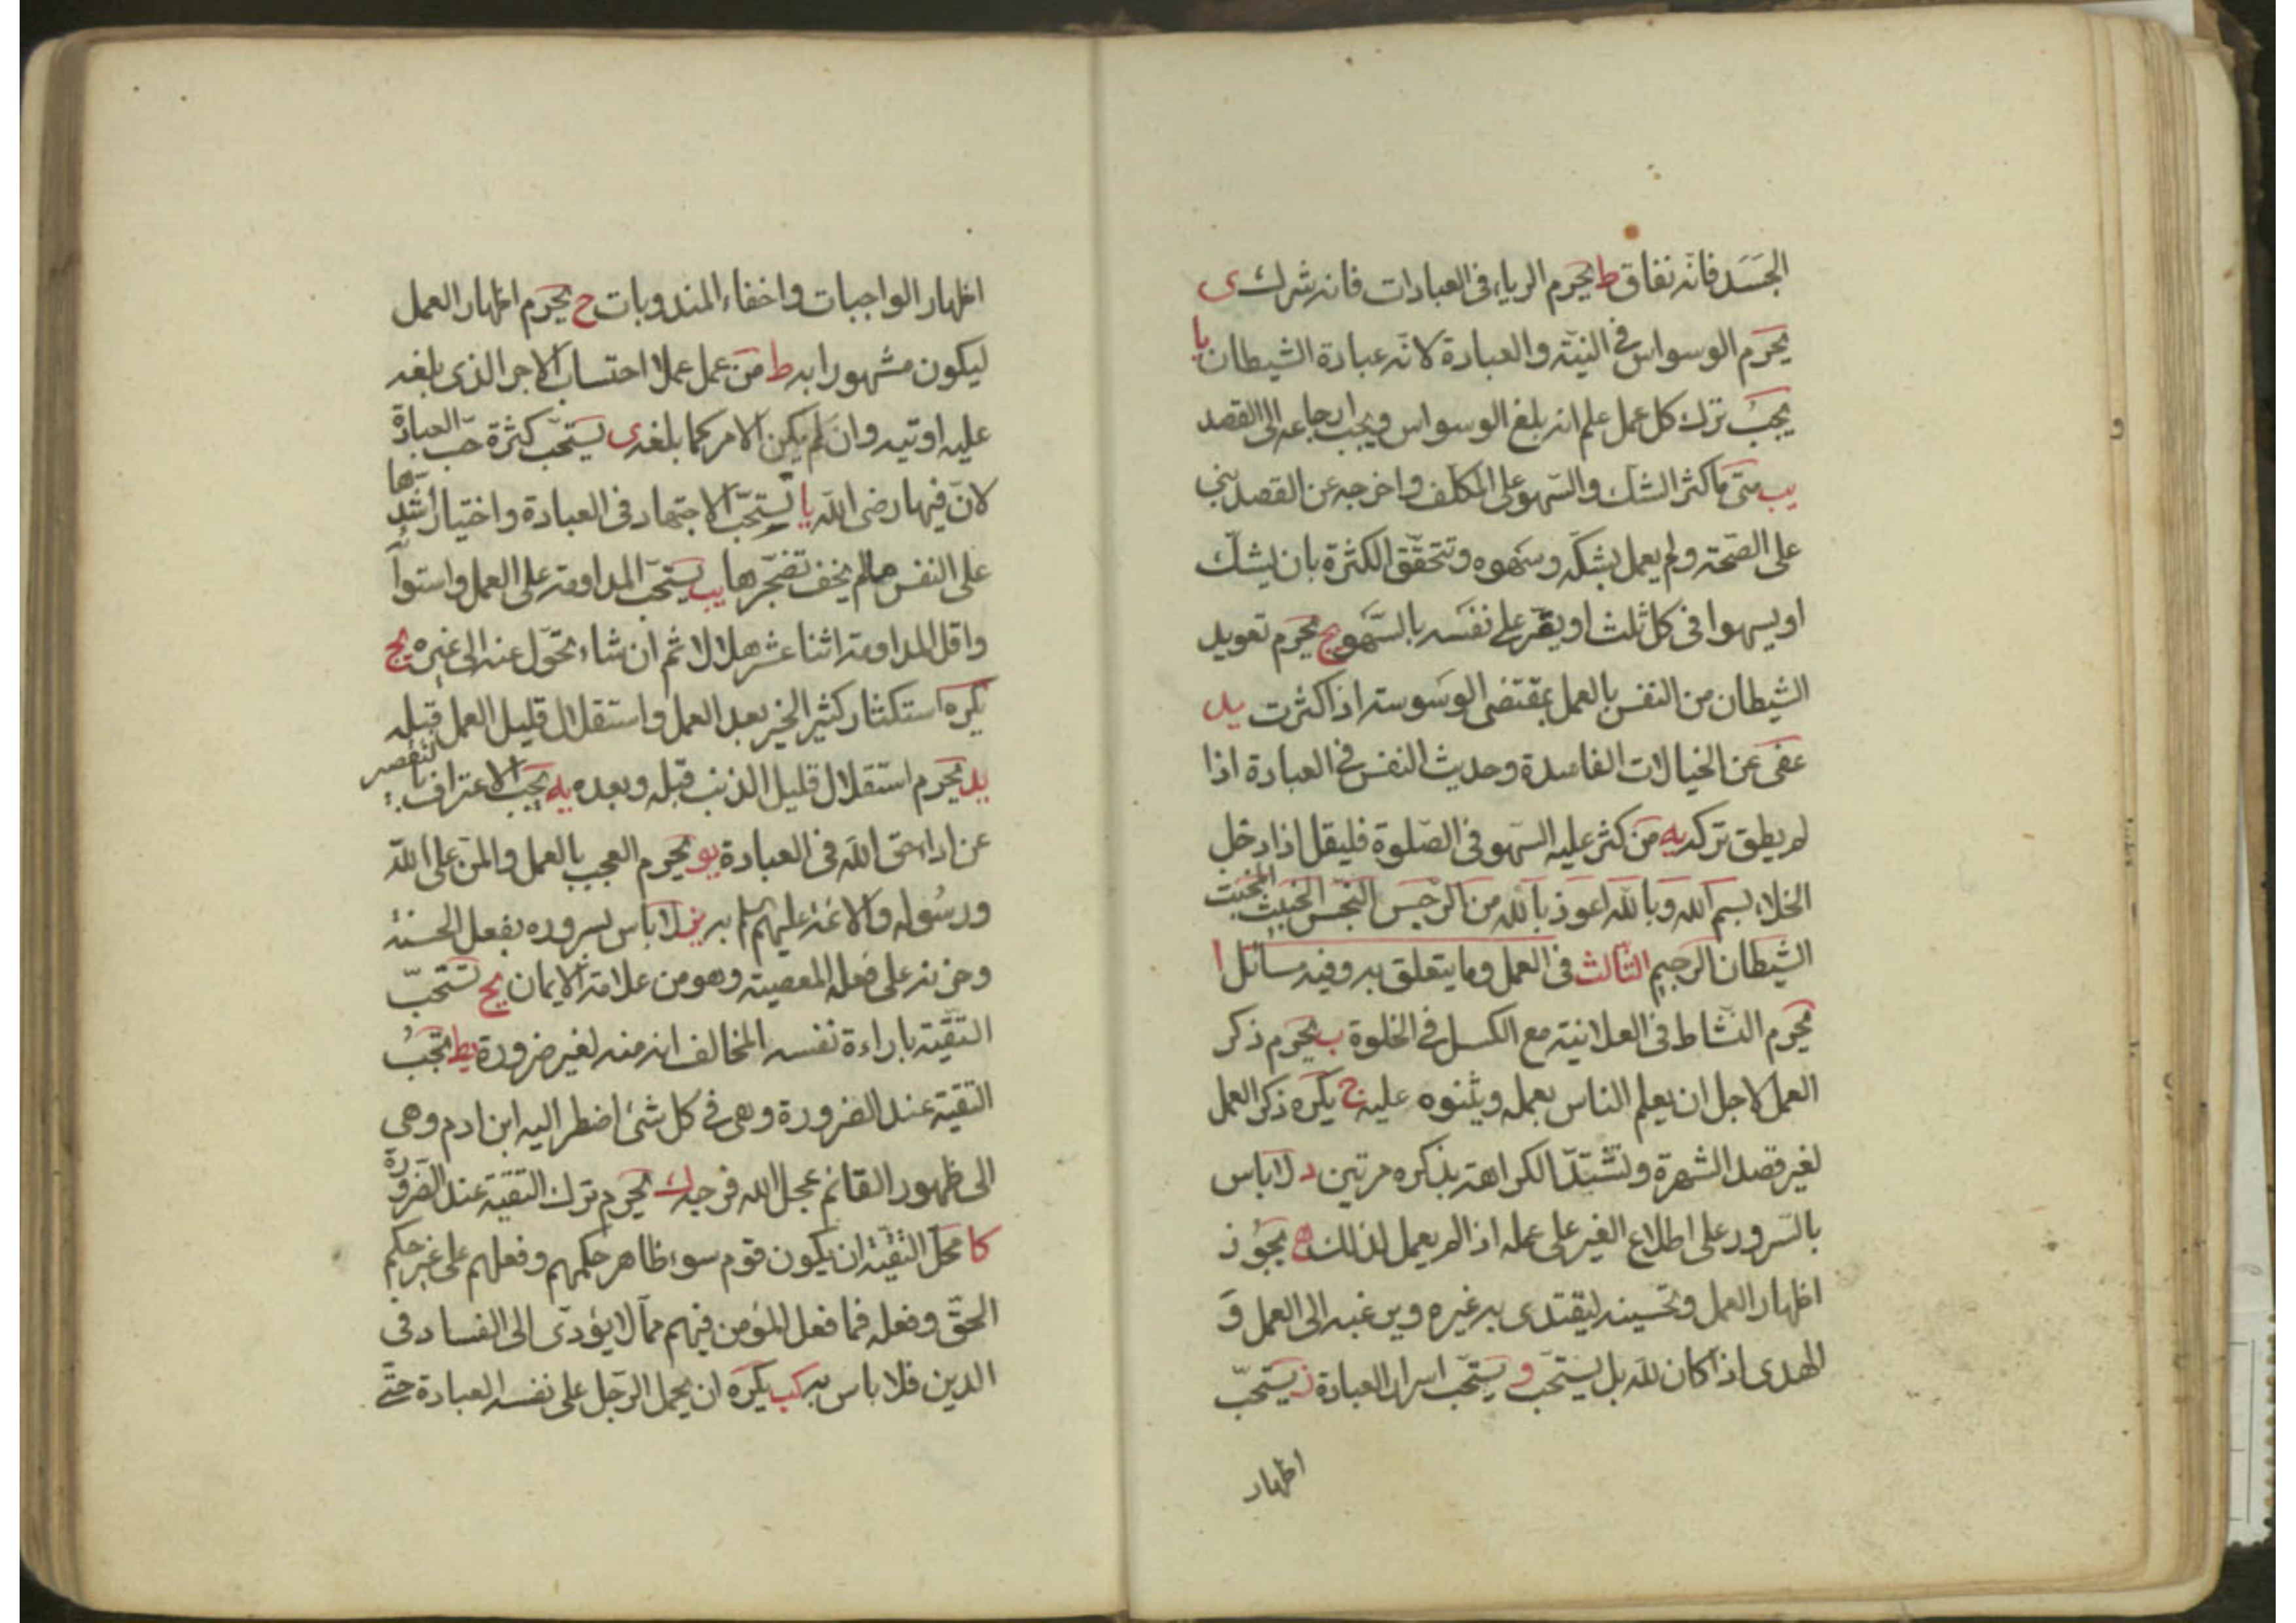 الجسد فانه نفاق ط يحرم الرياء فى العبادات فانه شرك ى
يحرم الوسواس فى النية والعبادة لانه عبادة الشيطان يا
يجب ترك كل عمل علم انه بلغ الوسواس ويجب ارجاعه الى القصد
يب متى ما كثر الشك والسهو على المكلف واخرجه عن القصد بنى
على الصحة ولم يعمل بشكه وسهوه وتتحقق الكثرة بان يشك
او يسهوا فى كل ثلث او يقر على نفسه بالسهو يج يحرم تعويد
الشيطان من النفس بالعمل بمقتضى الوسوسة اذا كثرت يد
عفى عن الخيالات الفاسدة وحديث النفس فى العبادة اذا
لم يطق تركه يه من كثر عليه السهو فى الصلوة فليقل اذا دخل
الخلاء بسم الله وبالله اعوذ بالله من الرجس النجس الخبيث المخبث
الشيطان الرجيم الثالث فى العمل وما يتعلق به وفيه مسائل ا
يحرم النشاط فى العلانية مع الكسل فى الخلوة ب يحرم ذكر
العمل لاجل ان يعلم الناس بعمله ويثنوه عليه ج يكره ذكر العمل
لغير قصد الشهرة وتشتد الكراهة بذكره مرتين د لا باس
بالسرور على اطلاع الغير على عمله اذا لم يعمل لذلك ه يجوز
اظهار العمل وتحسينه ليقتدى به غيره ويرغبه الى العمل و
الهدى اذا كان لله بل يستحب و يستحب اسرار العبادة ز يستحب
اظهار
اظهار الواجبات واخفاء المندوبات ح يحرم اظهار العمل
ليكون مشهورا به ط من عمل عملا احتساب الاجر الذى بلغه
عليه اوتيه وان لم يكن الامر كما بلغه ى يستحب كثرة حب العبادة
لان فيها رضى الله يا يستحب الاجتهاد فى العبادة واختيار اشدها
على النفس مالم يخف تضجرها يب يستحب المداومة على العمل واستوآ
واقل المداومة اثنا عشر هلالا ثم ان شاء تحول عنه الى غيره يج
يكره استكثار كثير الخير بعد العمل واستقلال قليل العمل قبله
يد يحرم استقلال قليل الذنب قبله وبعده يه يجب الاعتراف بالتقصير
عن اداء حق الله فى العبادة يو يحرم العجب بالعمل والمن على الله
ورسوله والائمة عليهم به يز لا باس بسروره بفعل الحسنة
وحزنه على فعله المعصية وهو من علامة الايمان يح تستحب
التقية باراءة نفسه المخالف انه منه لغير ضرورة يط تجب
التقية عند الضرورة وهى فى كل شئ اضطر اليه ابن ادم وهى
الى ظهور القائم عجل الله فرجه ك يحرم ترك التقية عند الضرورة
كا محل التقية ان يكون قوم سوء ظاهر حكمهم وفعلهم على غير حكم
الحق وفعله فما فعل المؤمن فيهم مما لا يؤدى الى الفساد فى
الدين فلا باس به كب يكره ان يحمل الرجل على نفسه العبادة حتى